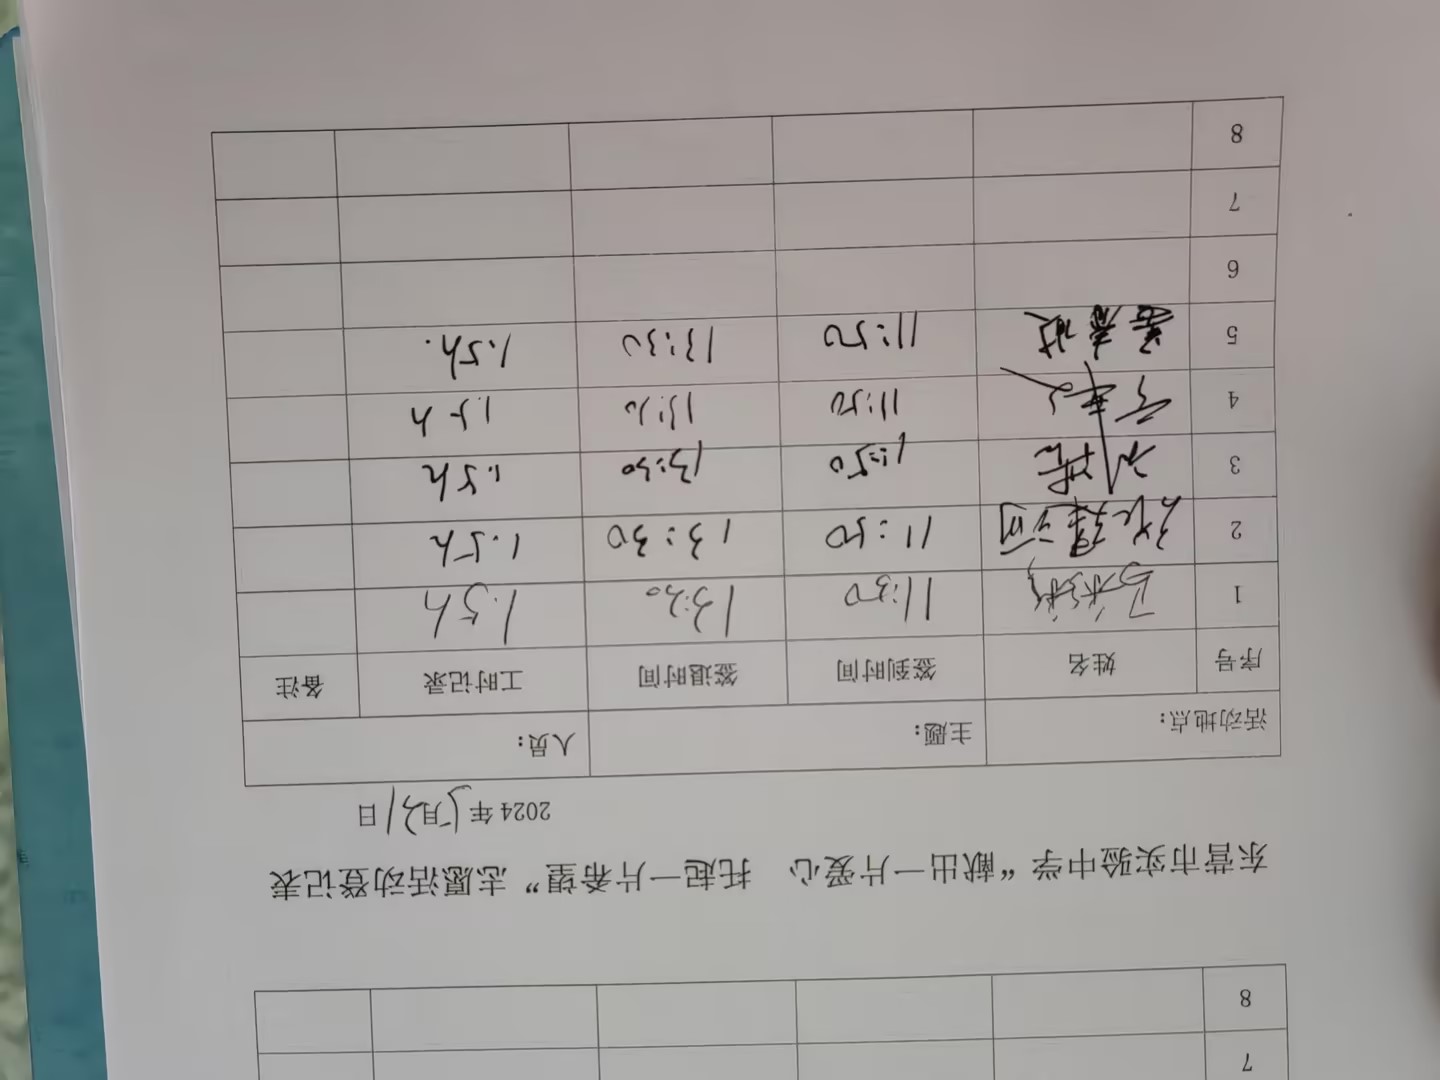 7
8
东营市实验中学“献出一片爱心 托起一片希望”志愿活动登记表
2024年5月21日
活动地点： 主题： 人员：
序号 姓名 签到时间 签退时间 工时记录 备注
1 11:50 13:30 1.5h
2 11:50 13:30 1.5h
3 11:50 13:30 1.5h
4 11:50 13:30 1.5h
5 11:50 13:30 1.5h.
6
7
8